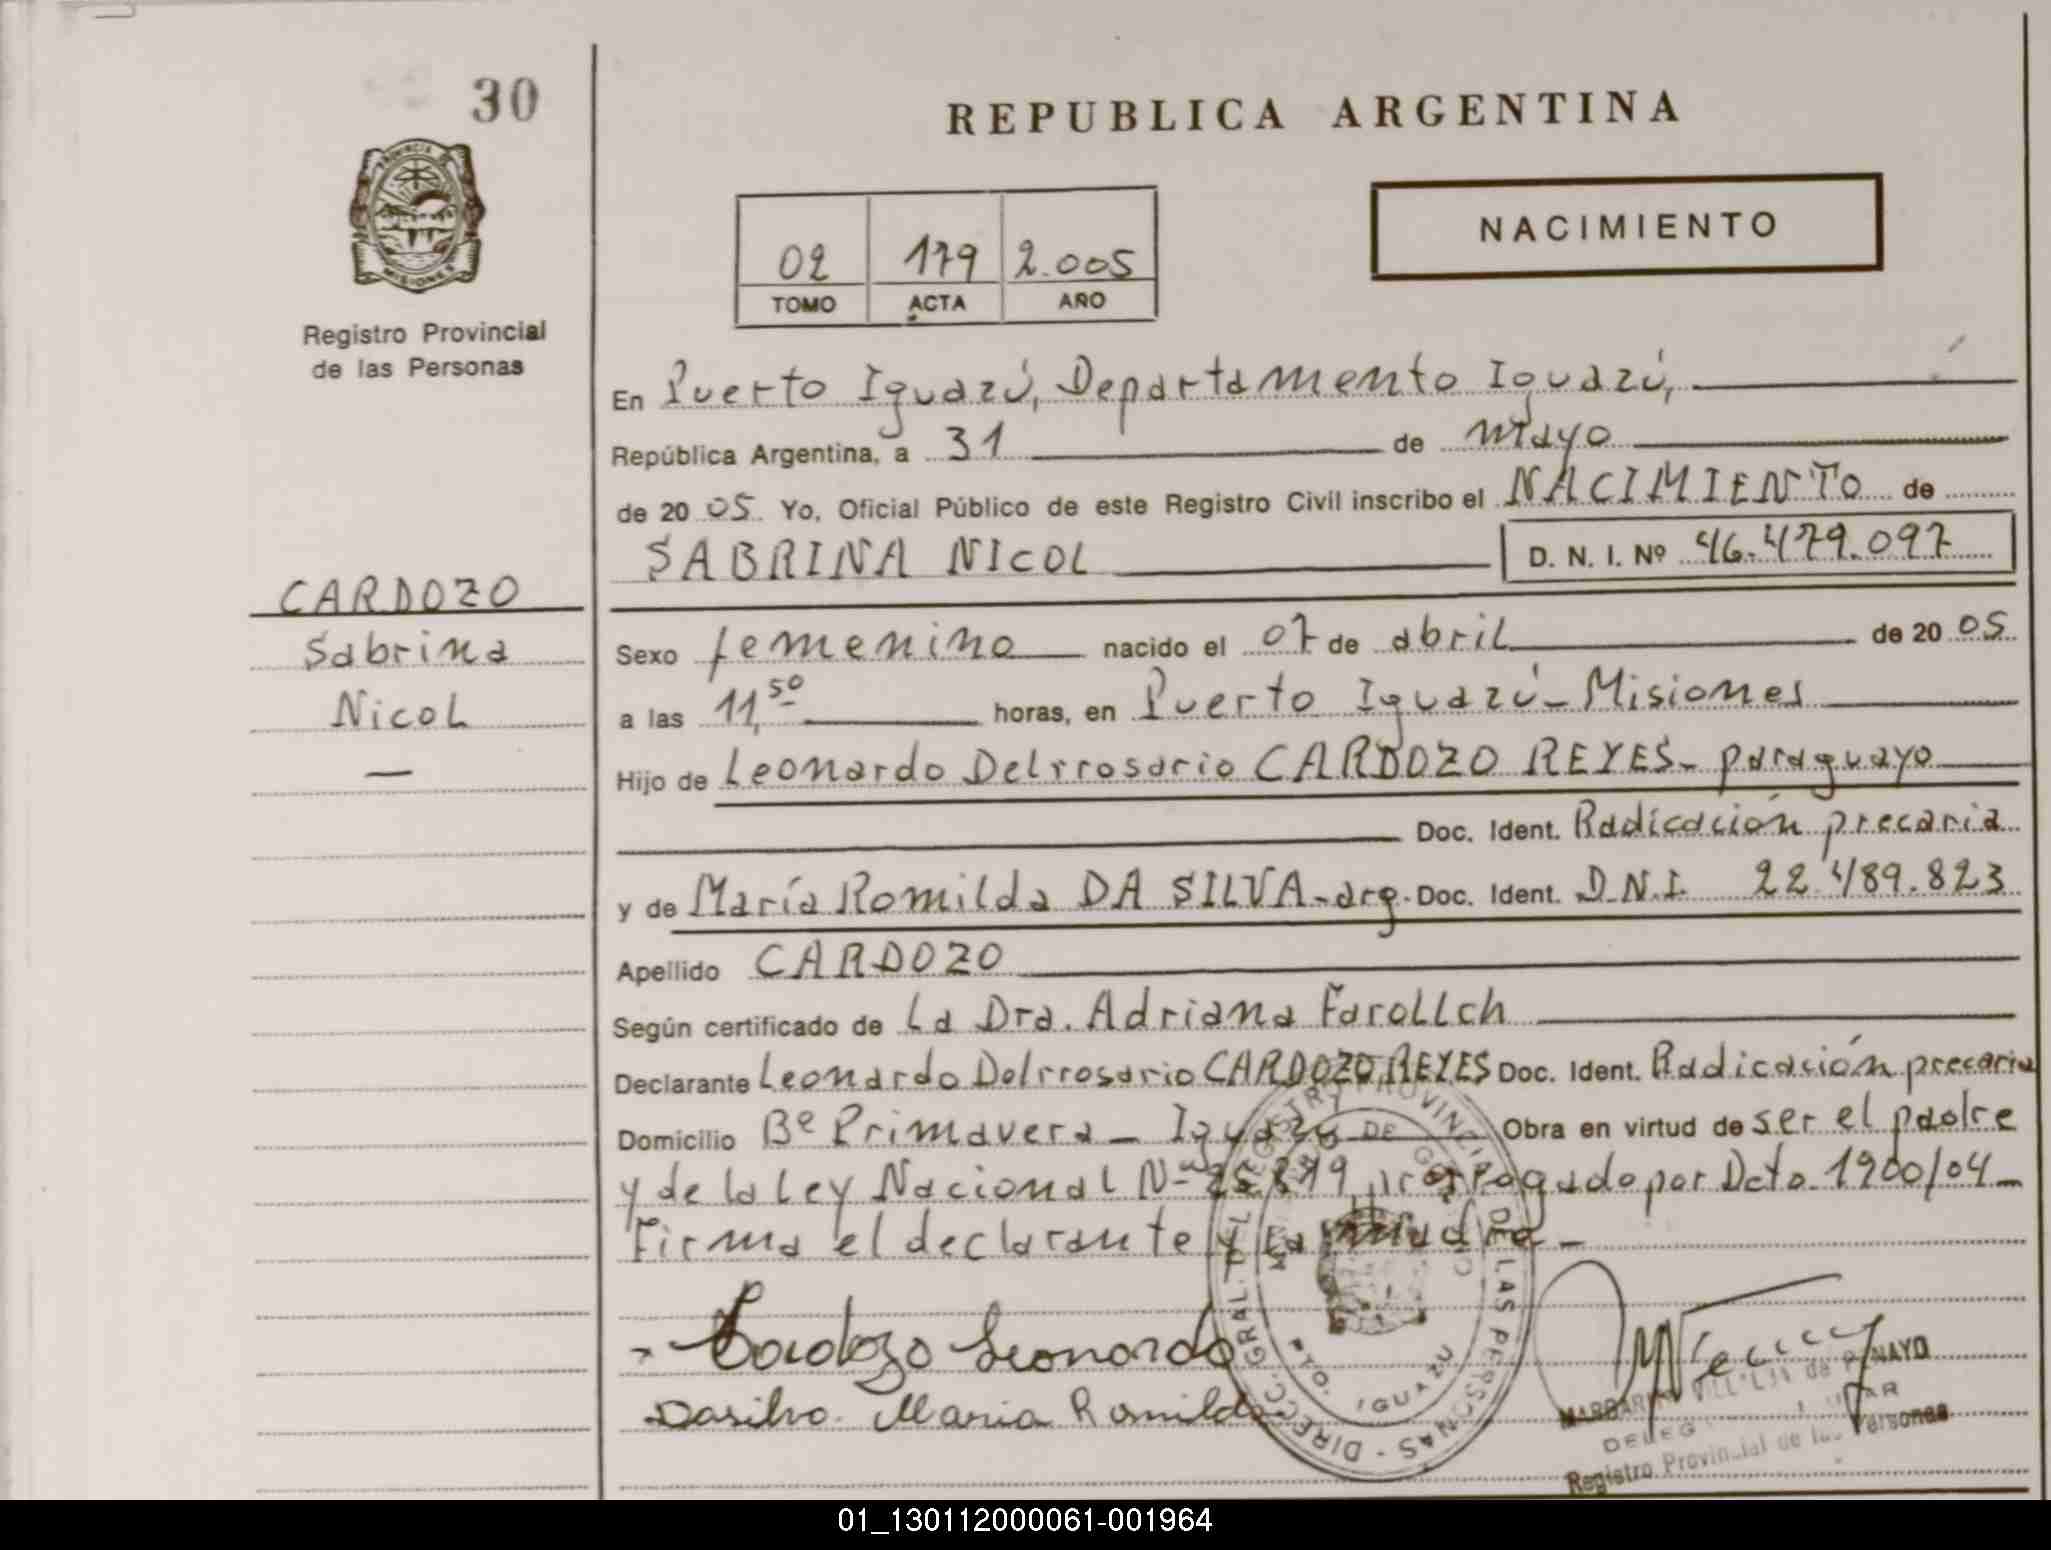 30
REPUBLICA ARGENTINA
PROVINCIA DE
MISIONES
Registro Provincial
de las Personas
NACIMIENTO
02 179 2.005
TOMO ACTA AÑO
En Puerto Iguazú, Departamento Iguazú,
República Argentina, a 31 de mayo
de 20 05. Yo, Oficial Público de este Registro Civil inscribo el NACIMIENTO de
SABRINA NICOL D. N. I. Nº 46.479.097
CARDOZO
Sabrina
Nicol
—
Sexo femenino nacido el 07 de abril de 20 05
a las 11,50 horas, en Puerto Iguazú - Misiones
Hijo de Leonardo Delrrosario CARDOZO REYES - paraguayo
Doc. Ident. Radicación precaria
y de María Romilda DA SILVA - arg. Doc. Ident. D.N.I. 22.489.823
Apellido CARDOZO
Según certificado de La Dra. Adriana Farollch
Declarante Leonardo Delrrosario CARDOZO REYES Doc. Ident. Radicación precaria
Domicilio Bº Primavera - Iguazú Obra en virtud de ser el padre
y de la Ley Nacional Nº prorrogado por Dcto. 1900/04 -
Firma el declarante y la madre -
Cardozo Leonardo
Dasilva Maria Romilda
DIRECC. GRAL. DEL REGISTRO PROVINCIAL DE LAS PERSONAS
IGUAZU
Registro Provincial de las Personas
01_130112000061-001964